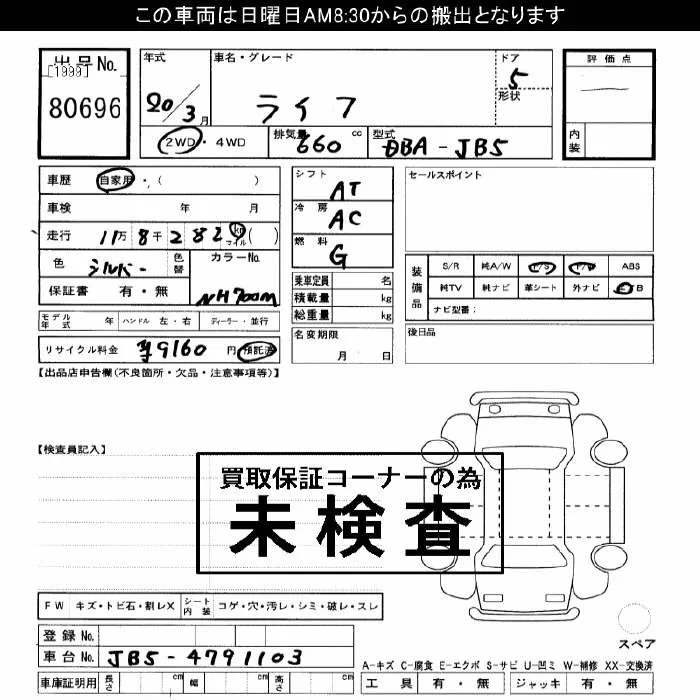 この車両は日曜日AM8:30からの搬出となります
出品No.
[1999]
80696
年式
20/3月
車名・グレード
ライフ
ドア
5
形状
評価点
内装
2WD・4WD
排気量 660 cc
型式 DBA-JB5
車歴 自家用・( )
車検 年 月
走行 11万8千282 km マイル ( )
色 シルバー 色替
カラーNo. NH700M
保証書 有・無
モデル年式 年 ハンドル 左・右 ディーラー・並行
リサイクル料金 ¥9160 円 預託済
シフト AT
冷房 AC
燃料 G
乗車定員 名
積載量 kg
総重量 kg
名変期限
月 日
セールスポイント
装備品
S/R 純A/W P/S P/W ABS
純TV 純ナビ 革シート 外ナビ エアB
ナビ型番:
後日品
【出品店申告欄(不良箇所・欠品・注意事項等)】
【検査員記入】
買取保証コーナーの為
未検査
FW キズ・トビ石・割レX シート内装 コゲ・穴・汚レ・シミ・破レ・スレ
登録No.
車台No. JB5-4791103
車庫証明用 長さ cm 幅 cm 高さ cm
スペア
A-キズ C-腐食 E-エクボ S-サビ U-凹ミ W-補修 XX-交換済
工具 有・無 ジャッキ 有・無